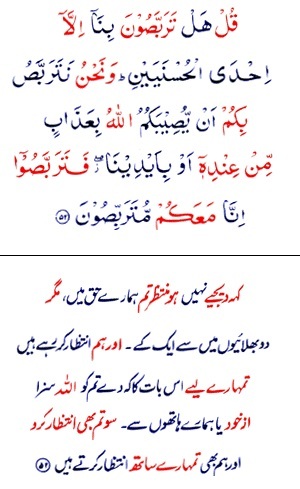 قُلْ هَلْ تَرَبَّصُوْنَ بِنَاۤ اِلَّاۤ
اِحْدَى الْحُسْنَيَيْنِ ؕ وَنَحْنُ نَتَرَبَّصُ
بِكُمْ اَنْ يُّصِيْبَكُمُ اللّٰهُ بِعَذَابٍ
مِّنْ عِنْدِهٖۤ اَوْ بِاَيْدِيْنَا ۖ فَتَرَبَّصُوْۤا
اِنَّا مَعَكُمْ مُّتَرَبِّصُوْنَ ﴿۵۲﴾
کہہ دیجیے نہیں ہو منتظر تم ہمارے حق میں، مگر
دو بھلائیوں میں سے ایک کے۔ اور ہم انتظار کر رہے ہیں
تمہارے لیے اس بات کا کہ دے تم کو اللہ سزا
از خود یا ہمارے ہاتھوں سے۔ سو تم بھی انتظار کرو
اور ہم بھی تمہارے ساتھ انتظار کرتے ہیں ﴿۵۲﴾